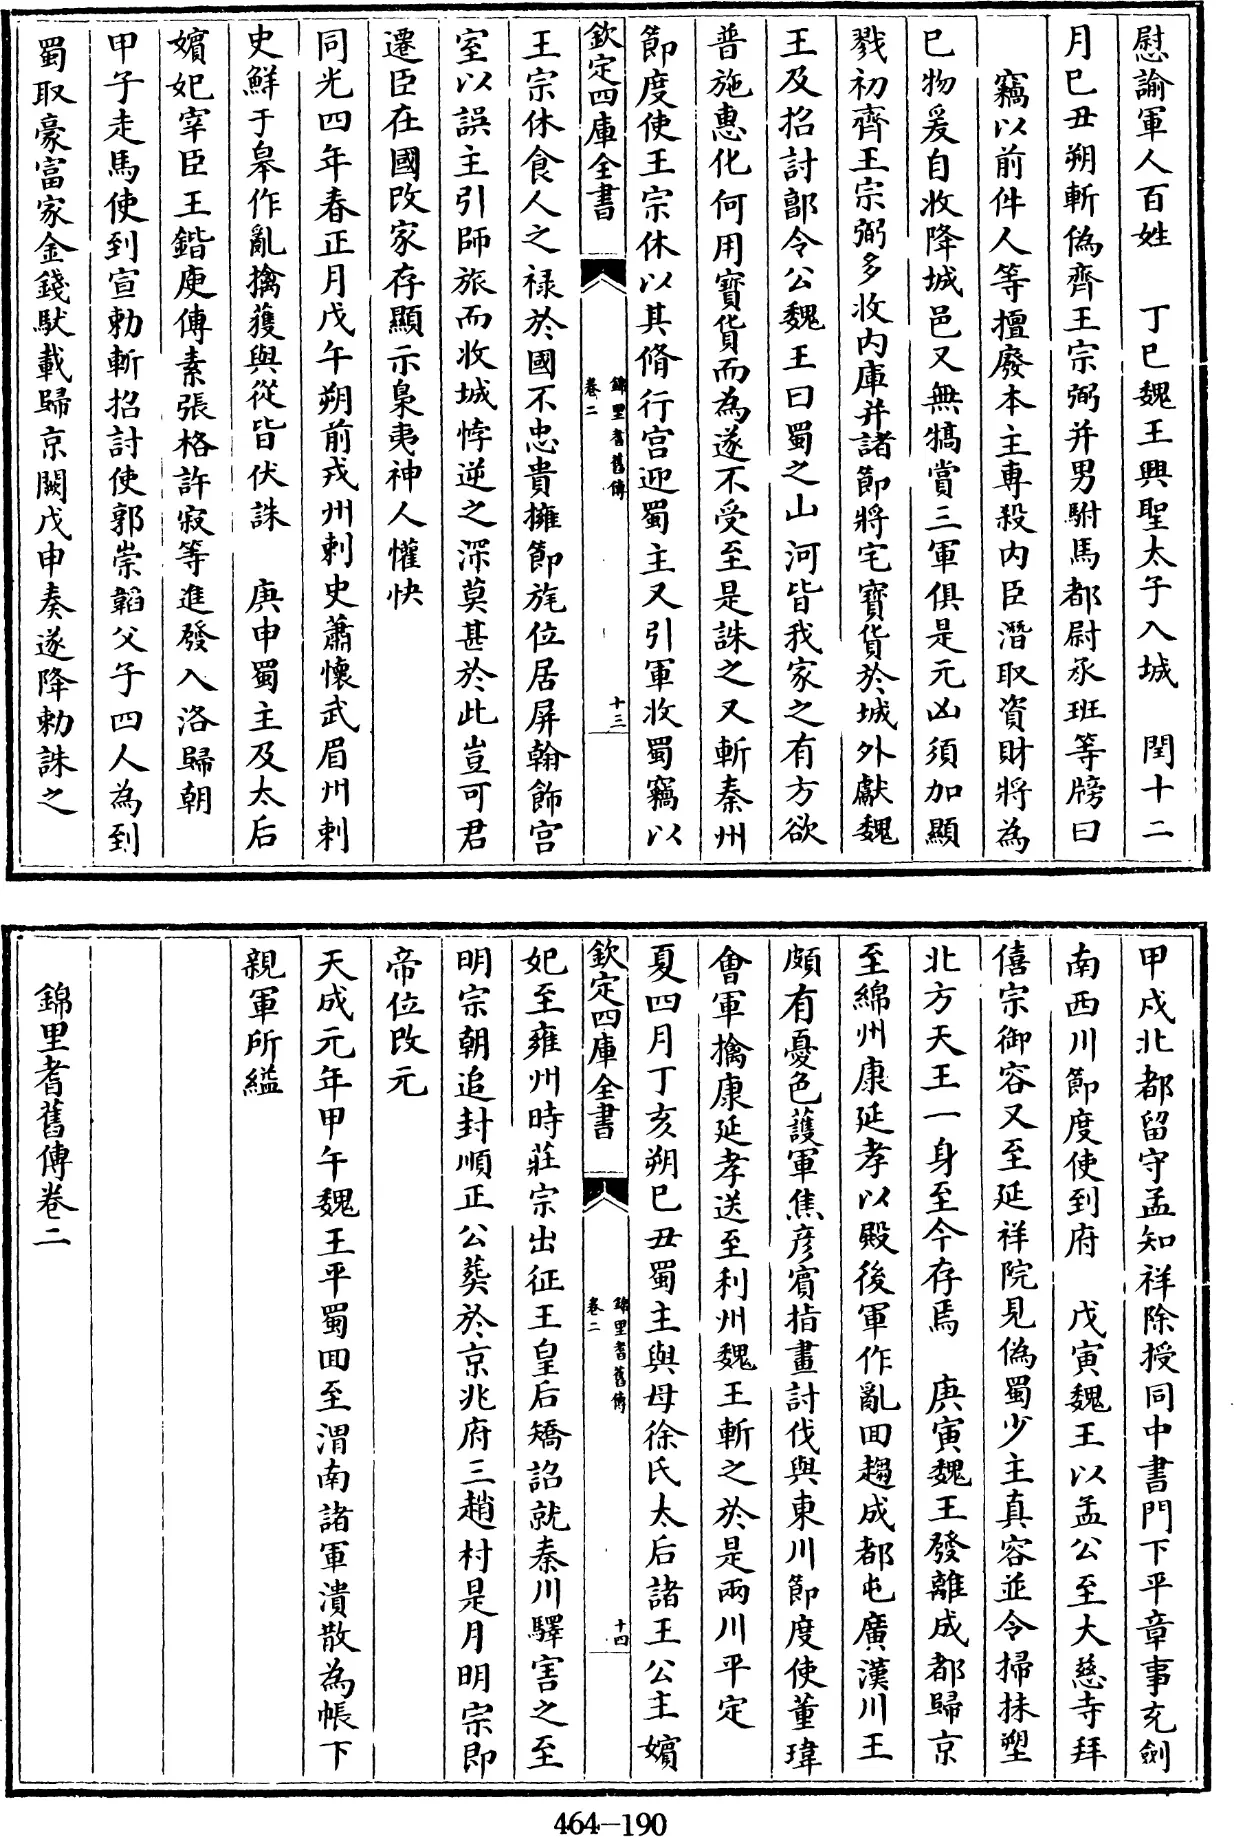 慰諭軍人百姓　丁巳魏王興聖太子入城　閏十二
月巳丑朔斬偽齊王宗弼并男駙馬都尉承班等牓曰
竊以前件人等擅廢本主專殺内臣潛取資財將為
巳物爰自收降城邑又無犒賞三軍俱是元凶須加顯
戮初齊王宗弼多收内庫并諸節將宅寳貨於城外獻魏
王及招討郭令公魏王曰蜀之山河皆我家之有方欲
普施惠化何用寳貨而為遂不受至是誅之又斬秦州
節度使王宗休以其脩行宫迎蜀主又引軍收蜀竊以
欽定四庫全書
錦里耆舊傳
卷二
十三
王宗休食人之禄於國不忠貴擁節旄位居屏翰飾宫
室以誤主引師旅而收城悖逆之深莫甚於此豈可君
遷臣在國改家存顯示梟夷神人懽快
同光四年春正月戊午朔前戎州刺史蕭懷武眉州刺
史鮮于皋作亂擒獲與從皆伏誅　庚申蜀主及太后
嬪妃宰臣王鍇庾傳素張格許寂等進發入洛歸朝
甲子走馬使到宣勅斬招討使郭崇韜父子四人為到
蜀取豪富家金錢馱載歸京闕戊申奏遂降勅誅之
甲戌北都留守孟知祥除授同中書門下平章事充劍
南西川節度使到府　戊寅魏王以孟公至大慈寺拜
僖宗御容又至延祥院見偽蜀少主真容並令掃抹塑
北方天王一身至今存焉　庚寅魏王發離成都歸京
至綿州康延孝以殿後軍作亂囬趨成都屯廣漢川王
頗有憂色護軍焦彦賓指畫討伐與東川節度使董璋
會軍擒康延孝送至利州魏王斬之於是兩川平定
夏四月丁亥朔巳丑蜀主與母徐氏太后諸王公主嬪
欽定四庫全書
錦里耆舊傳
卷二
十四
妃至雍州時莊宗出征王皇后矯詔就秦川驛害之至
明宗朝追封順正公葬於京兆府三趙村是月明宗即
帝位改元
天成元年甲午魏王平蜀囬至渭南諸軍潰散為帳下
親軍所縊
錦里耆舊傳卷二
464-190